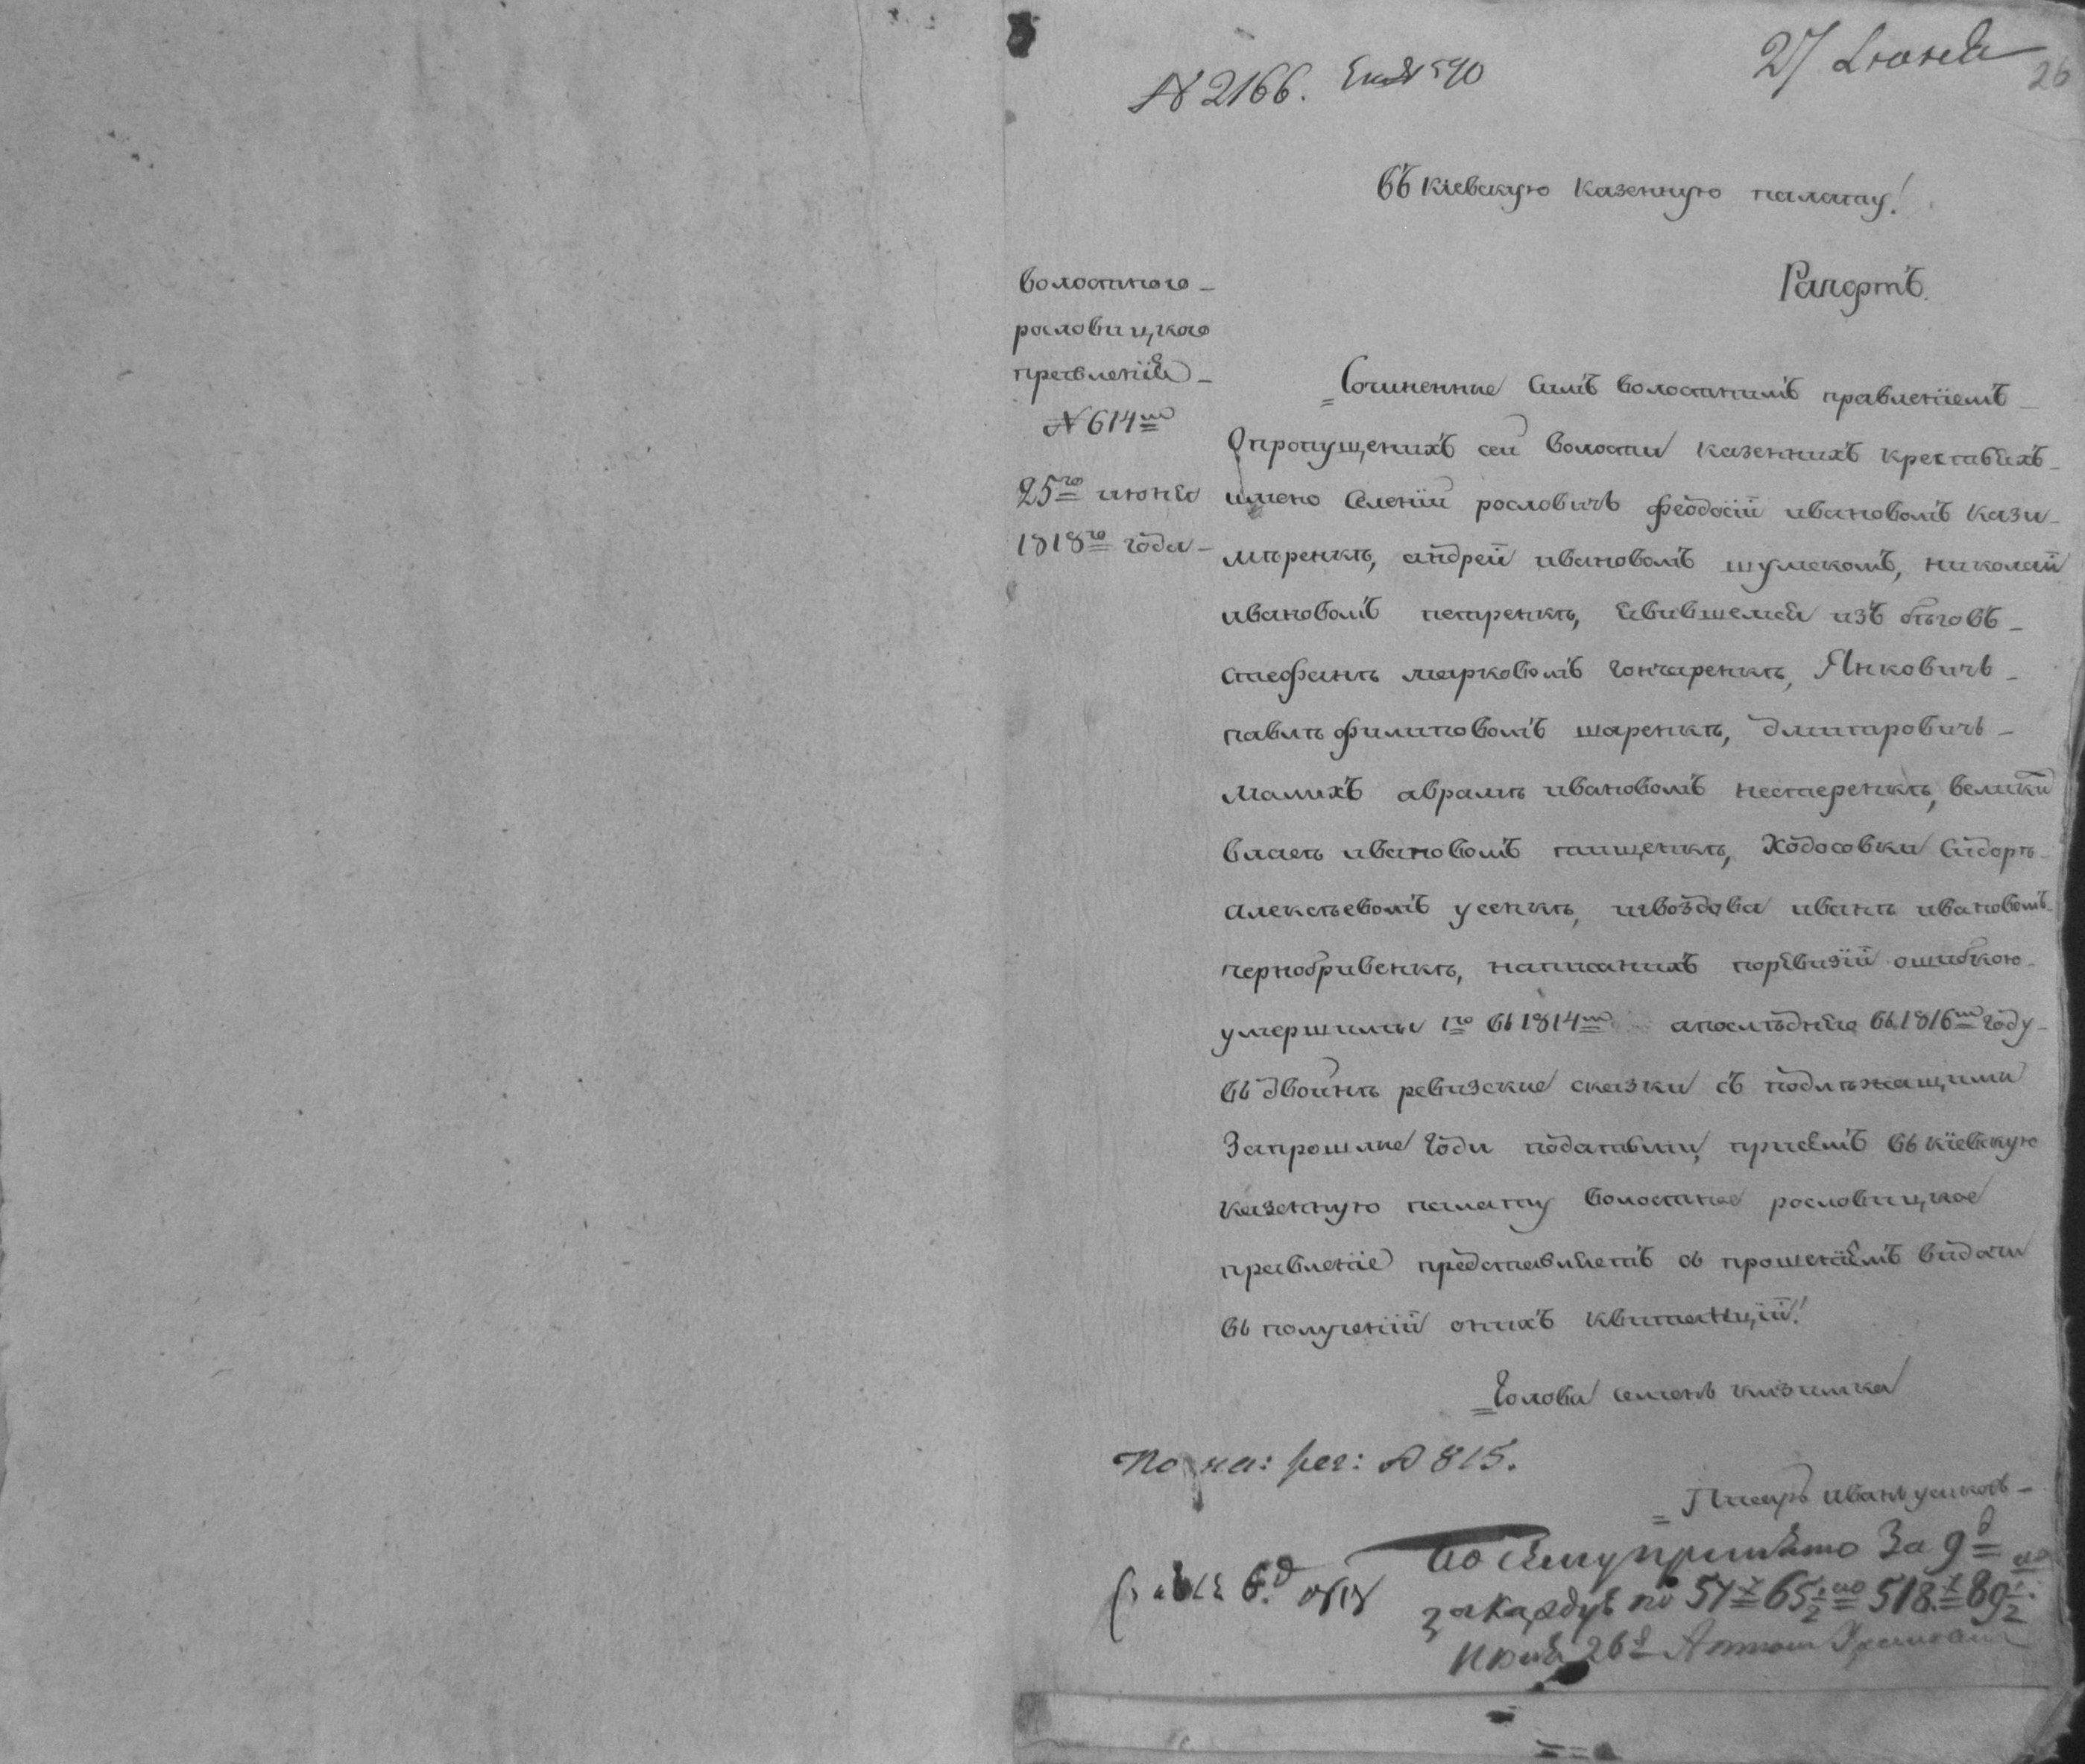 27 Июня
26
№ 2166.
въ кіевскую казенную палату!
Рапортъ.
волостного
рословицкаго
правленія
№ 614
25го июня
1818го года
Сочиненные симъ волостнимъ правленіемъ
Опропущенихъ сей волости казеннихъ крестьянхъ
имено Селеній рословичъ феодосій ивановомъ кази-
миренкѣ, андрей ивановомъ шумскомъ, николай
ивановомъ петренкѣ, явившемся изъ бѣговъ
стефанѣ марковомъ гончаренкѣ, Янковичъ
павлѣ филиповомъ шаренкѣ, дмитровичъ
малихъ аврамѣ ивановомъ нестеренкѣ, велики
власѣ ивановомъ тищенкѣ, Ходосовки сидорѣ
алексѣевомъ усенкѣ, гвоздова иванѣ ивановомъ
чернобривенкѣ, написанихъ поревизій ошибкою
умершими въ 1814 апослѣднего въ 1816 году
въ двойнѣ ревизские сказки съ подлѣжащими
Запрошлие годи податьми, присемъ въ кіевскую
казенную палату волостное рословицкое
правленіе представляетъ съ прошеніемъ видачи
въ полученій онихъ квитанцій!
Голова семенъ кизимка
По на: рег: № 815.
Писарь иванъ усиковъ
По сему принято За 9
закаждую по 57 65 1/2 518 89 1/2
Июня 26